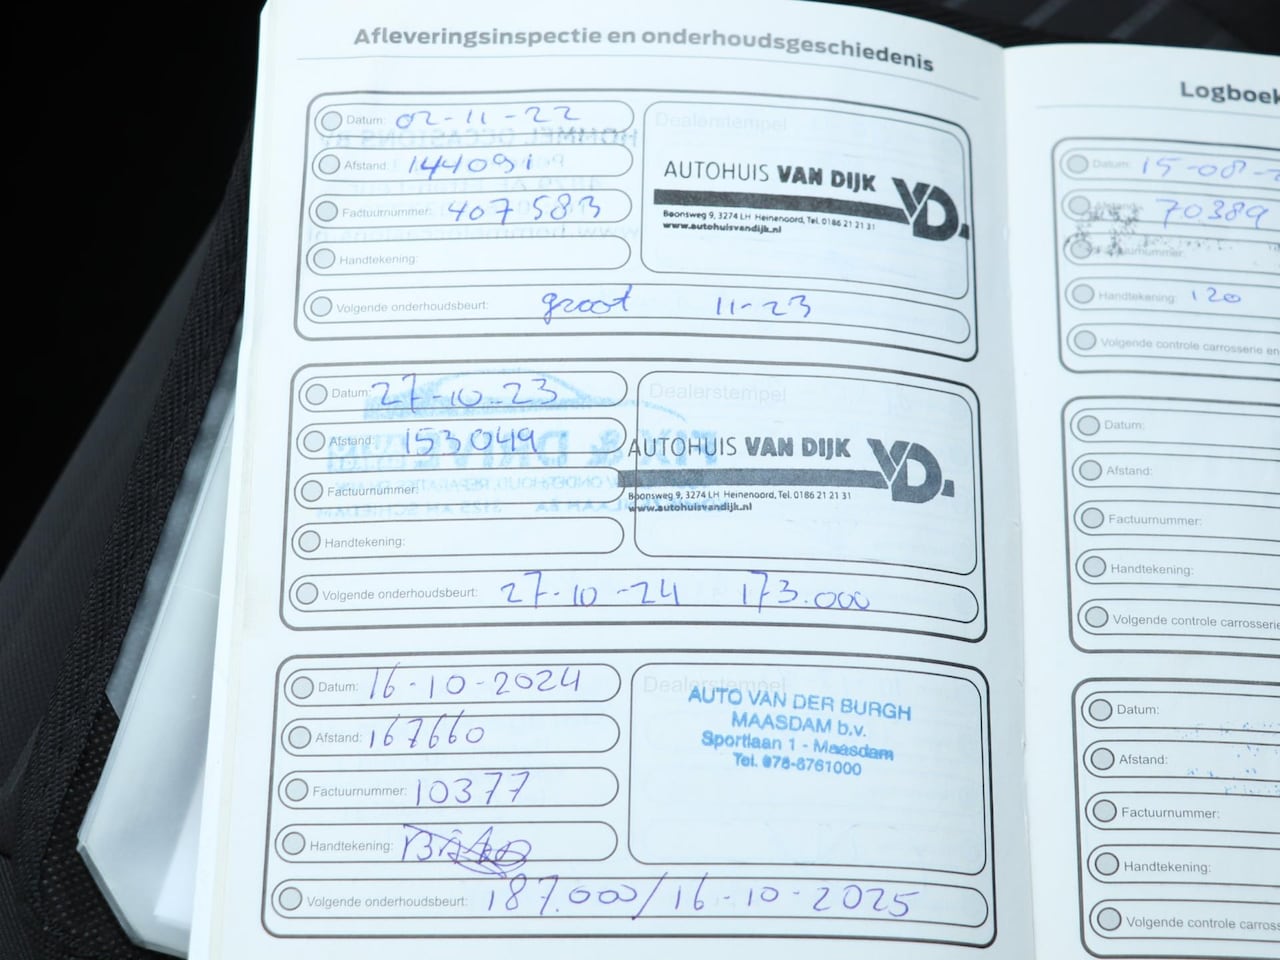 Afleveringsinspectie en onderhoudsgeschiedenis
Datum: 02-11-22
Afstand: 144091
Factuurnummer: 407583
Handtekening:
Volgende onderhoudsbeurt: groot 11-23
Dealerstempel
AUTOHUIS VAN DIJK VD.
Boonsweg 9, 3274 LH Heinenoord, Tel. 0186 21 21 31
www.autohuisvandijk.nl
Datum: 27-10-23
Afstand: 153049
Factuurnummer:
Handtekening:
Volgende onderhoudsbeurt: 27-10-24 173.000
Dealerstempel
AUTOHUIS VAN DIJK VD.
Boonsweg 9, 3274 LH Heinenoord, Tel. 0186 21 21 31
www.autohuisvandijk.nl
Datum: 16-10-2024
Afstand: 167660
Factuurnummer: 10377
Handtekening:
Volgende onderhoudsbeurt: 187.000/16-10-2025
Dealerstempel
AUTO VAN DER BURGH
MAASDAM b.v.
Sportlaan 1 - Maasdam
Tel. 078-6761000
Logboek
Datum: 15-08-2
Afstand: 70389
Factuurnummer:
Handtekening: 120
Volgende controle carrosserie en
Datum:
Afstand:
Factuurnummer:
Handtekening:
Volgende controle carrosserie
Datum:
Afstand:
Factuurnummer:
Handtekening:
Volgende controle carross